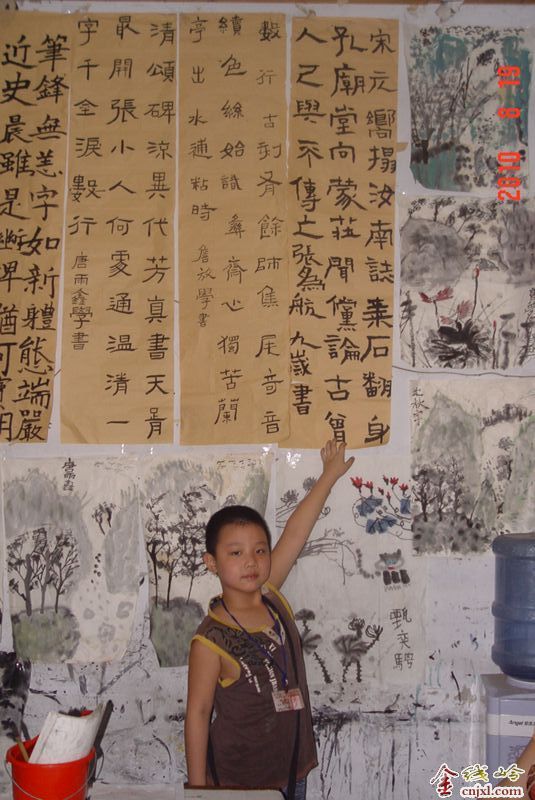 宋元嚮搨汝南誌棗石翻身
孔廟堂向蒙莊聞儻論古曾
人己與不傳之張為航九歲書
數行古刻有餘師焦尾奇音
續色絲始識彝齋心獨苦蘭
亭出水補粘時 詹放學書
清頌碑流異代芳真書天骨
最開張小人何處通溫清一
字千金淚數行 唐雨鑫學書
筆鋒無恙字如新體態端嚴
近史晨雖是斷碑猶可寶用
2010 8 19
唐雨鑫
甄奕騁
Angel
金线岭
cnjxl.com